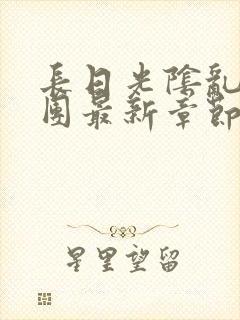 長日光陰亂
團最新章節
星里望留